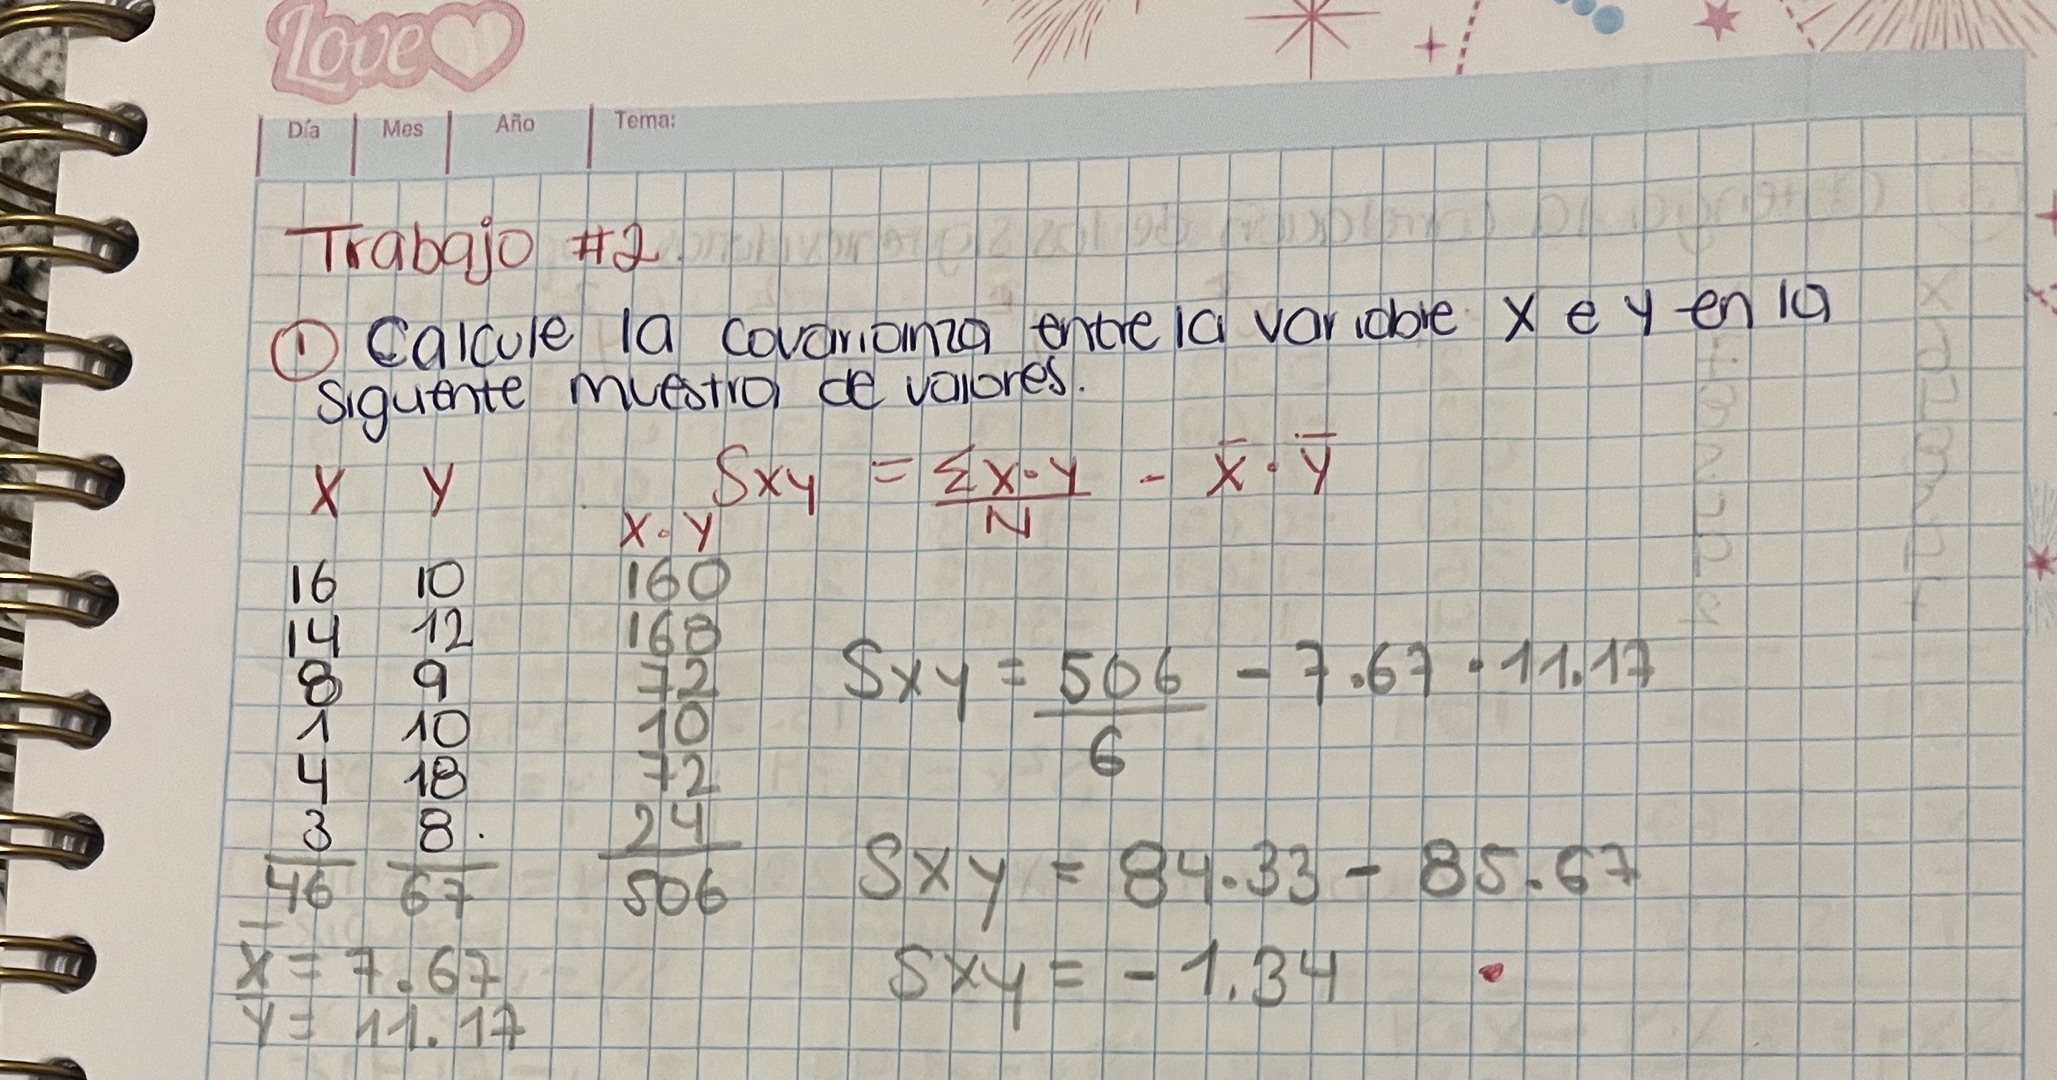 Love
Día Mes Año Tema:
Trabajo #2
① Calcule la covarianza entre la variable X e Y en la
siguiente muestra de valores.
X Y X·Y Sxy = Σx·y / N - x̄·ȳ
16 10 160
14 12 168
8 9 72
1 10 10
4 18 72
3 8. 24
46 67 506
Sxy = 506 / 6 - 7.67 · 11.17
Sxy = 84.33 - 85.67
Sxy = -1.34
X̄ = 7.67
Ȳ = 11.17